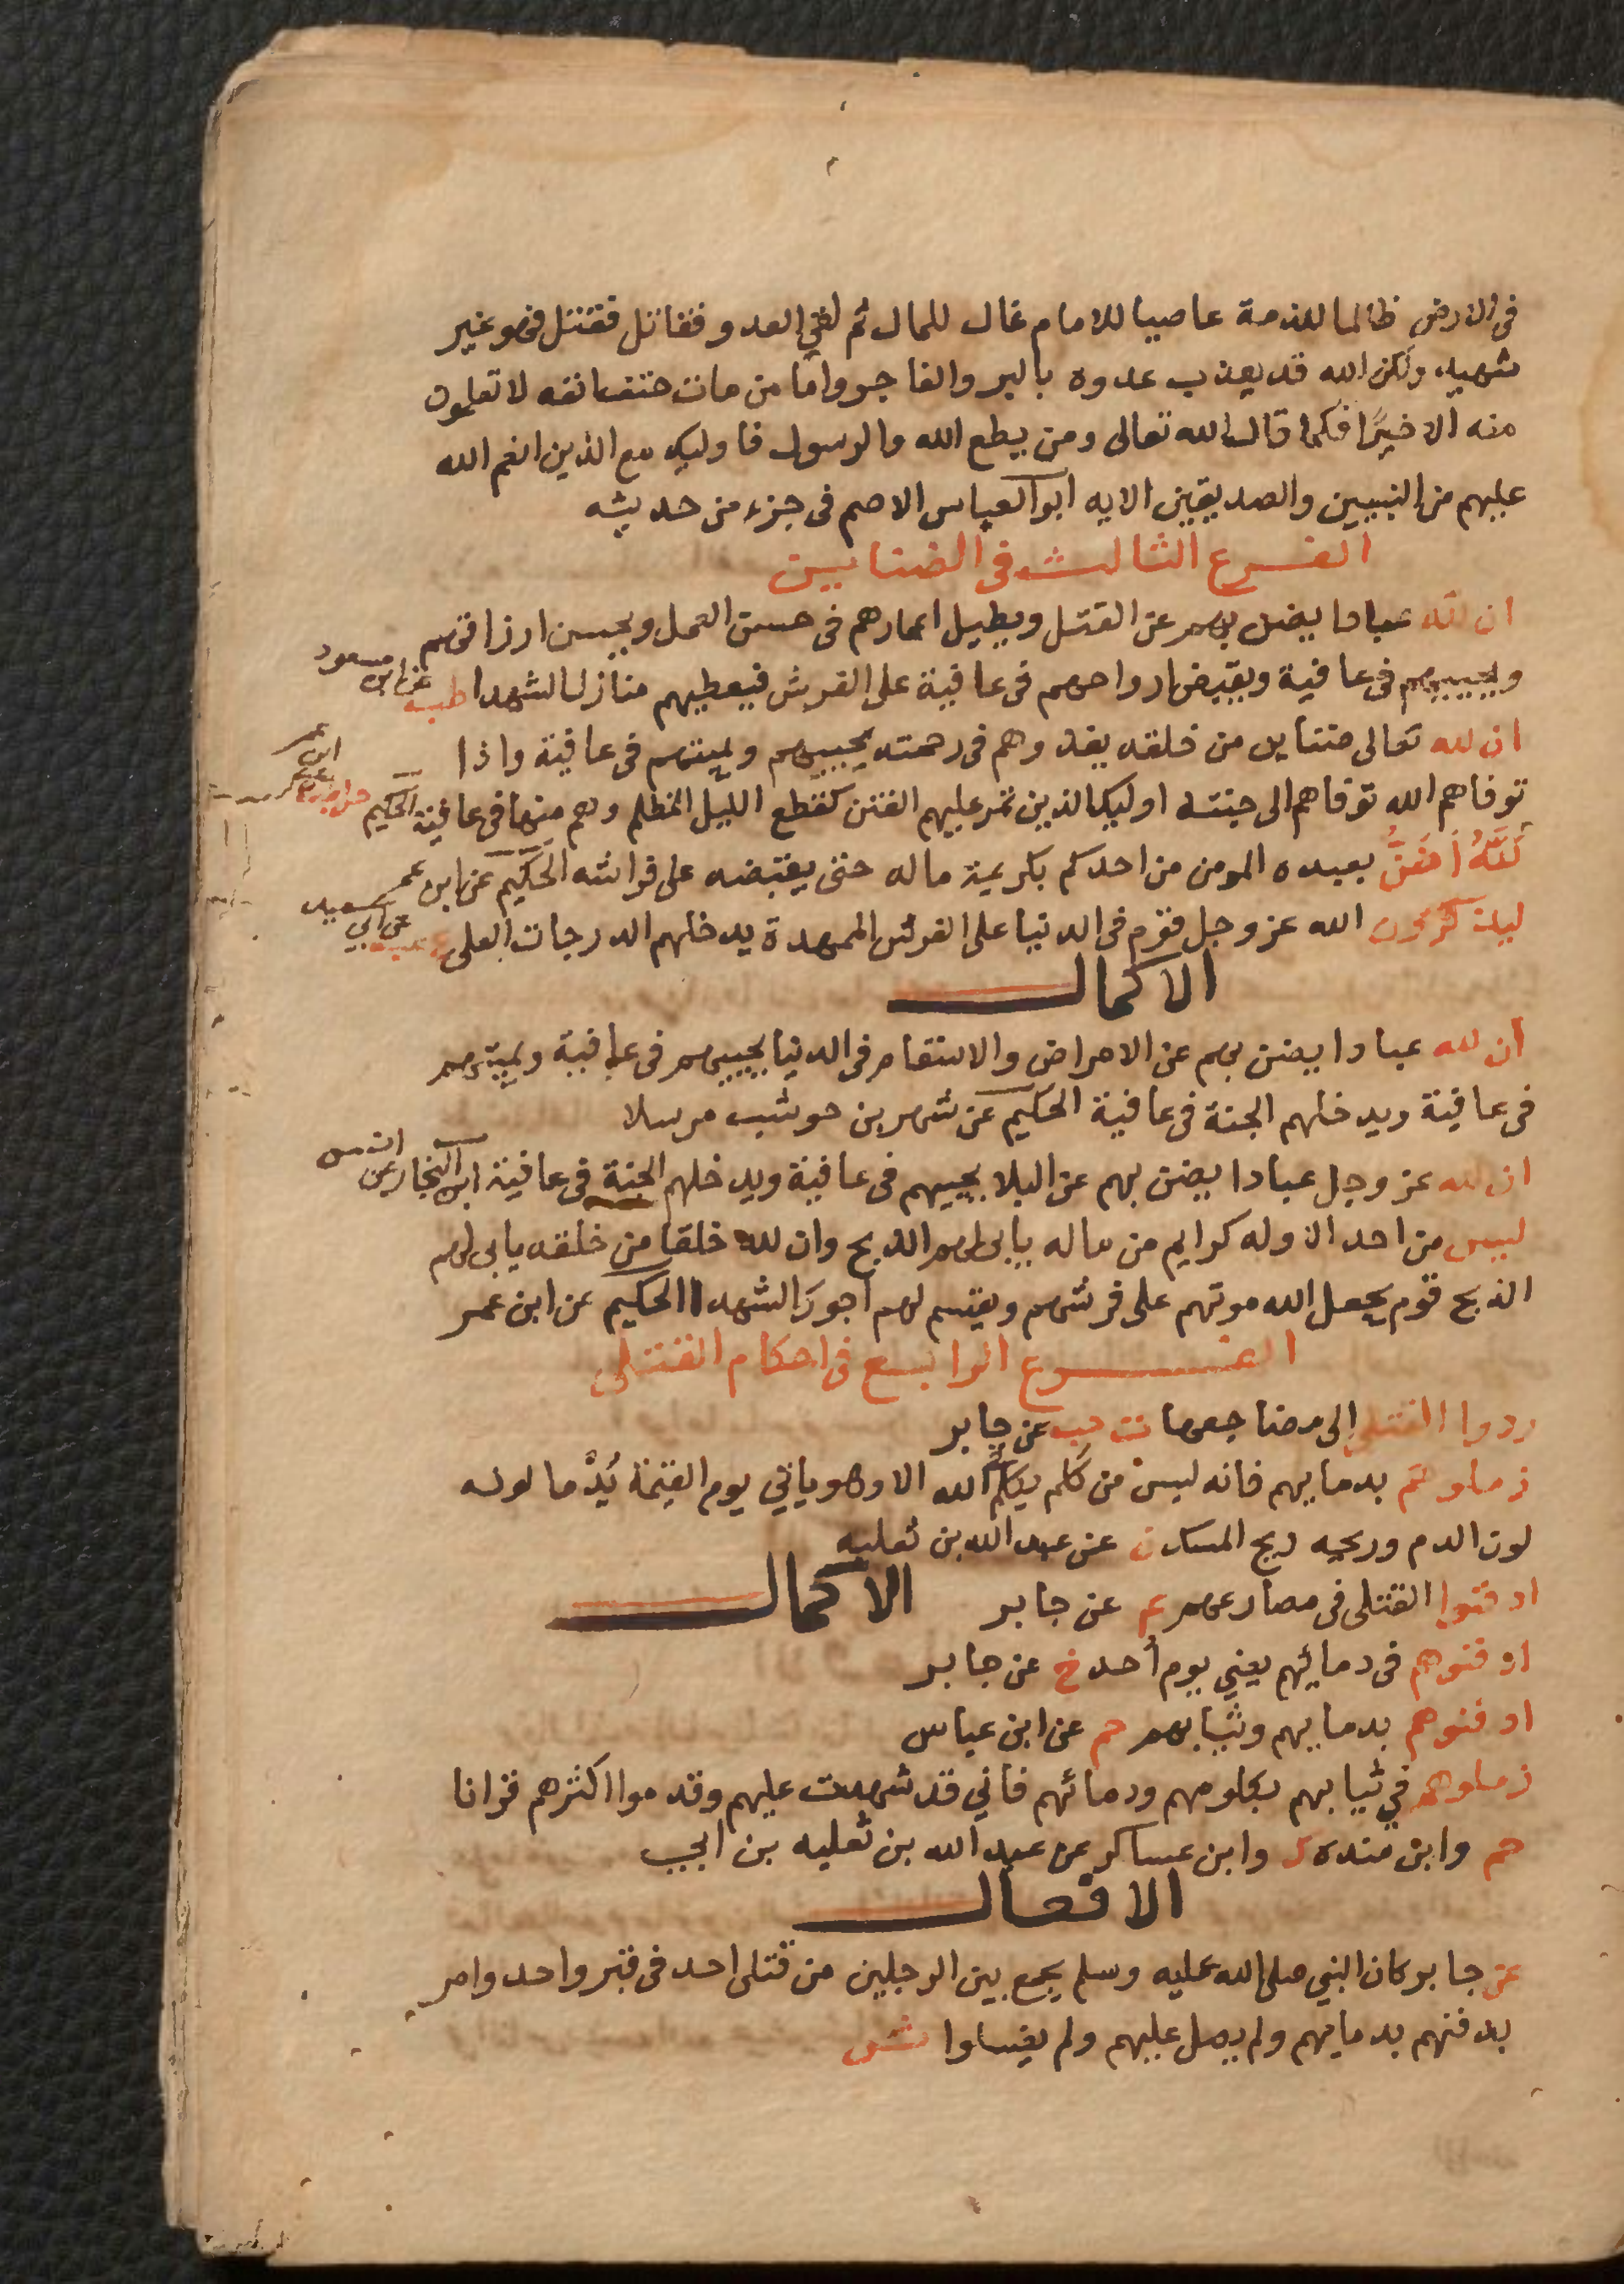 فى الارض ظالما للذمة عاصيا للامام غال للمال ثم لقي العدو فقاتل فقتل فهو غير
شهيد ولكن الله قد يعذب عدوه بالبر والفاجر واما من مات حتف انفه لا تعلمون
منه الا خيرًا فكما قال الله تعالى ومن يطع الله والرسول فاوليك مع الذين انعم الله
عليهم من النبيين والصديقين الايه ابو العباس الاصم فى جزء من حديثه
الفرع الثالث فى الضناين
ان لله عبادا يضن بهم عن القتل ويطيل اعمارهم فى حسن العمل ويحسن ارزاقهم
ويحييهم فى عافية ويقبض ارواحهم فى عافية على الفرش فيعطيهم منازل الشهدا طب عن ابن مسعود
ان لله تعالى ضناين من خلقه يغذوهم فى رحمته يحييهم ويميتهم فى عافية واذا
توفاهم الله توفاهم الى جنته اوليك الذين تمر عليهم الفتن كقطع الليل المظلم وهم منها فى عافية الحكيم عن ابن عمر
لَلَّهُ اَضَنُّ بعبده المومن من احدكم بكريمة ماله حتى يقبضه على فراشه الحكيم عن ابن عمر
ليذكرون الله عز وجل قوم فى الدنيا على الفرش الممهدة يدخلهم الدرجات العلى عن ابي سعيد
الاكمال
ان لله عبادا يضن بهم عن الامراض والاسقام فى الدنيا يحييهم فى عافية ويميتهم
فى عافية ويدخلهم الجنة فى عافية الحكيم عن شهر بن حوشب مرسلا
ان لله عز وجل عبادا يضن بهم عن البلا يحييهم فى عافية ويدخلهم الجنة فى عافية ابن النجار عن انس
ليس من احد الا وله كرايم من ماله يابى لهم الذبح وان لله خلقا من خلقه يابى لهم
الذبح قوم يجعل الله موتهم على فرشهم ويقسم لهم اجور الشهدا الحكيم عن ابن عمر
الفرع الرابع فى احكام القتلى
ردوا القتلى الى مضاجعها ت حب عن جابر
زملوهم بدمايهم فانه ليس من كلم يكلم الله الا وهو ياتي يوم القيمة يُدْما لونه
لون الدم وريحه ريح المسك ن عن عبد الله بن ثعلبه
ادفنوا القتلى فى مصارعهم عن جابر الاكمال
ادفنوهم فى دمائهم يعني يوم أحد خ عن جابر
ادفنوهم بدمايهم وثيابهم حم عن ابن عباس
زملوهم في ثيابهم بكلومهم ودمائهم فاني قد شهدت عليهم وقدموا اكثرهم قرانا
حم وابن منده ك وابن عساكر عن عبد الله بن ثعلبه بن ابي
الافعال
عن جابر كان النبي صلى الله عليه وسلم يجمع بين الرجلين من قتلى احد فى قبر واحد وامر
بدفنهم بدمايهم ولم يصل عليهم ولم يغسلوا ش